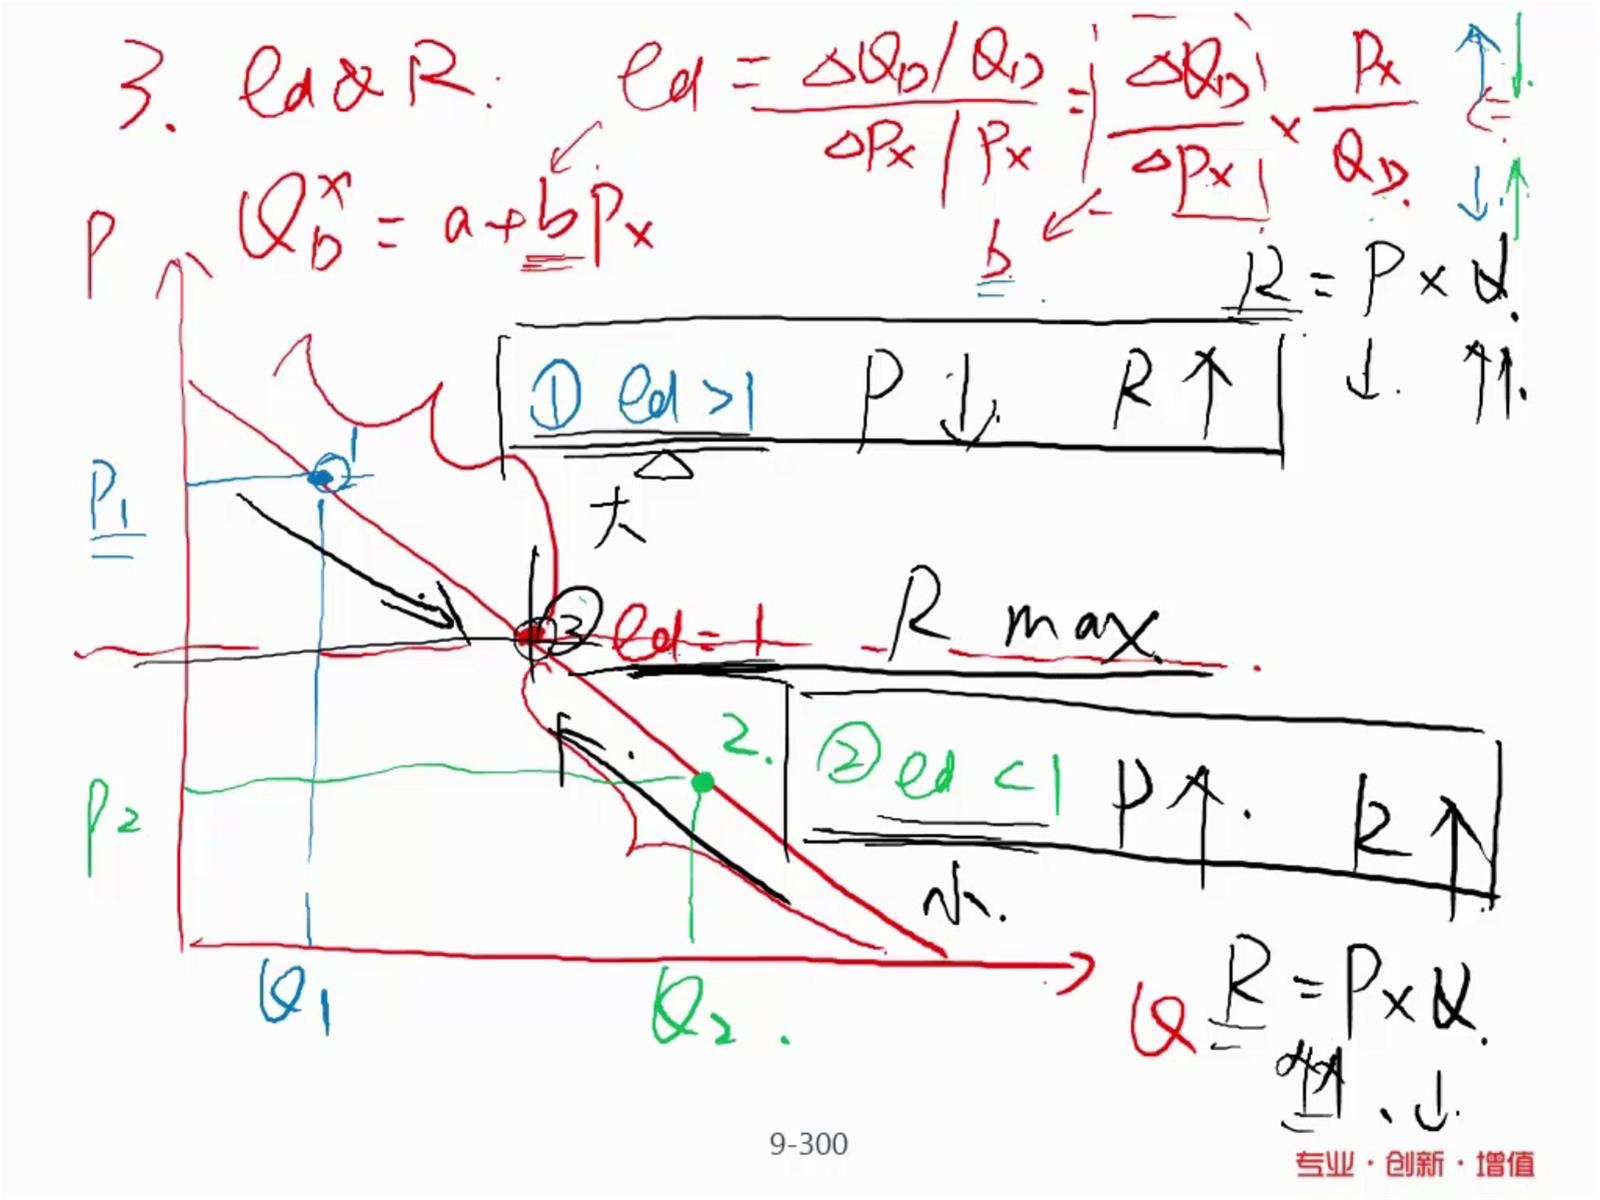 3. ed & R: ed = ΔQD/QD / ΔPx/Px = |ΔQD / ΔPx| × Px / QD. ↑ ↓.
QDx = a + bPx b ↓ ↑
P R = P × Q.
① ed > 1 P ↓ R ↑ ↓. ↑↑.
1
P1 大
③ ed = 1 R max.
2. ② ed < 1 P ↑. R ↑
P2
小.
Q1 Q2. Q R = P × Q.
↑↑. ↓.
9-300
专业·创新·增值